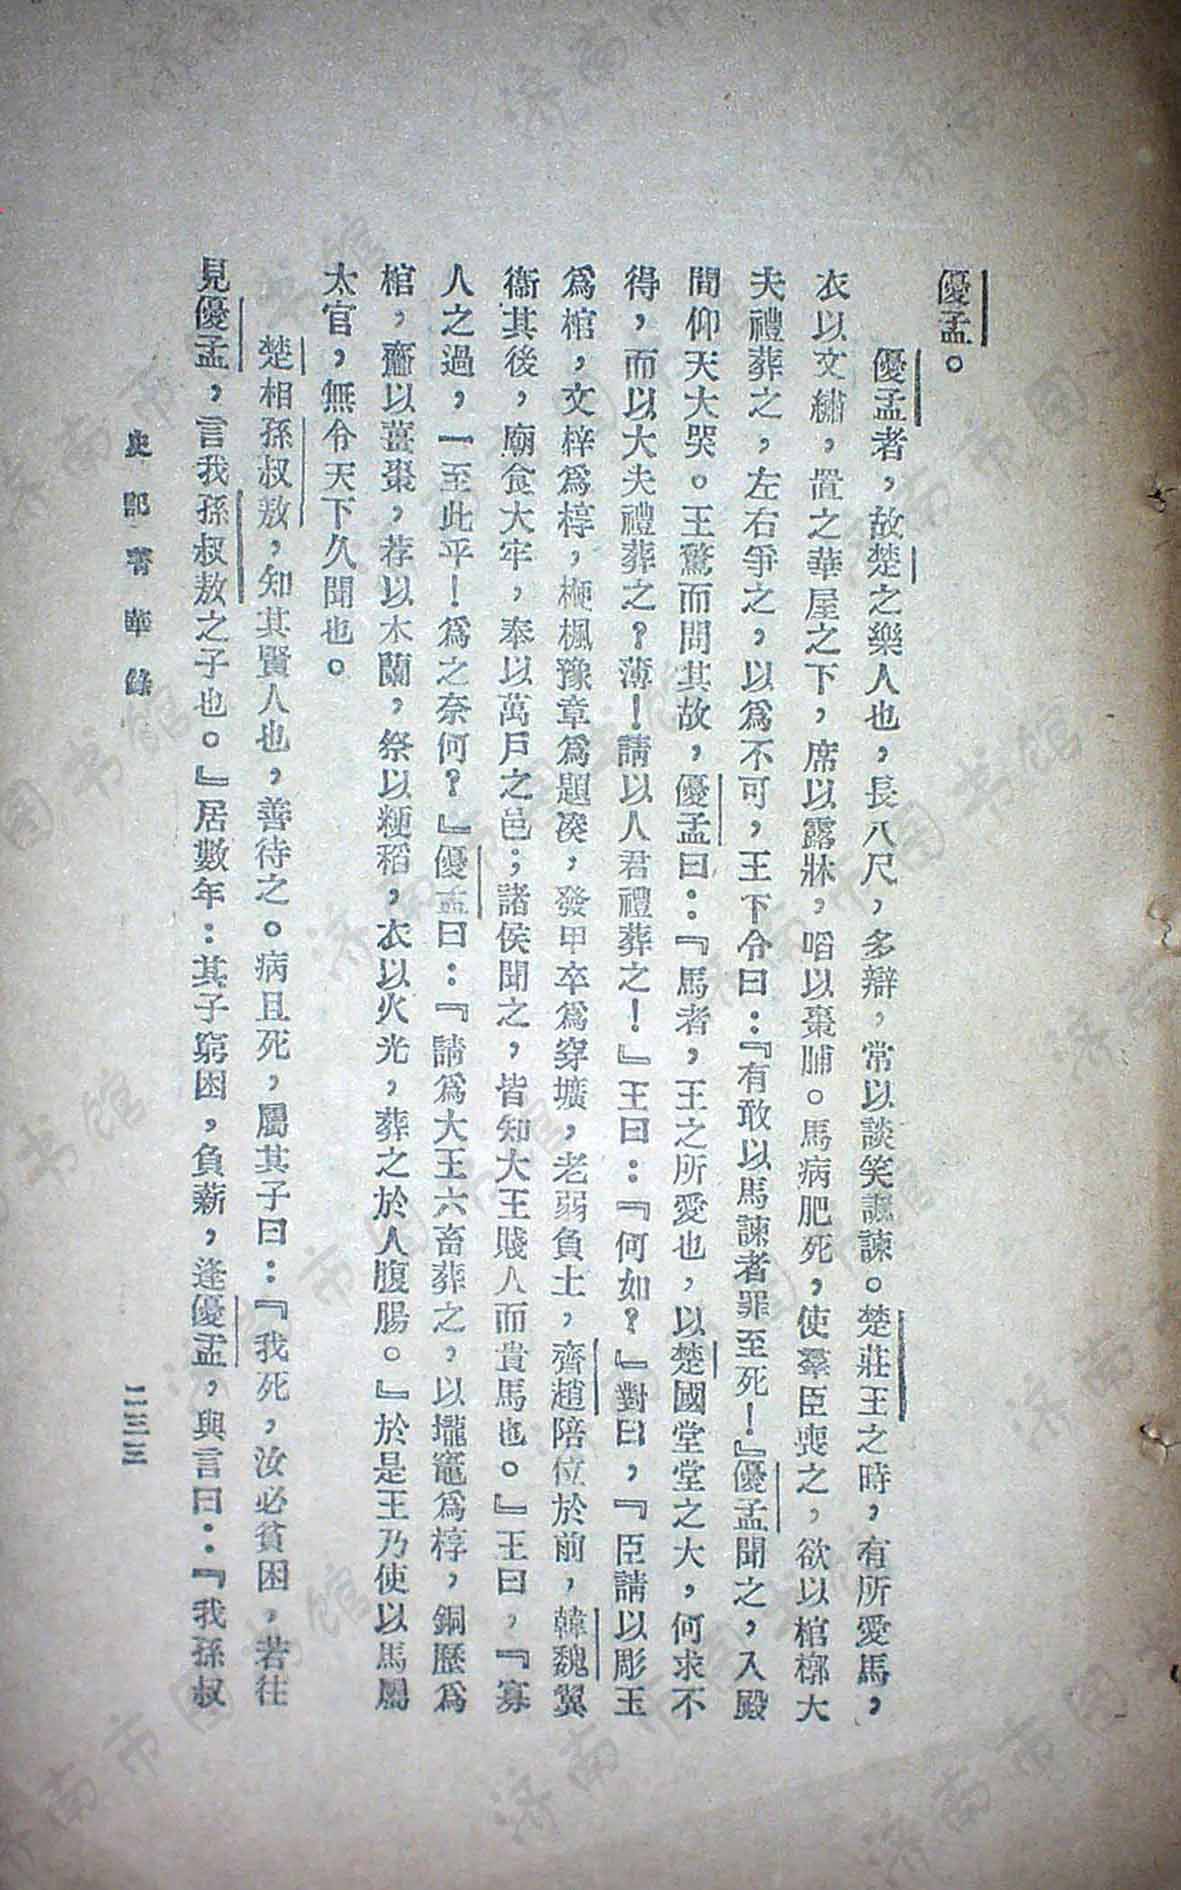 優孟。
優孟者，故楚之樂人也，長八尺，多辯，常以談笑諷諫。楚莊王之時，有所愛馬，
衣以文繡，置之華屋之下，席以露牀，啗以棗脯。馬病肥死，使羣臣喪之，欲以棺槨大
夫禮葬之，左右爭之，以爲不可，王下令曰：『有敢以馬諫者罪至死！』優孟聞之，入殿
間仰天大哭。王驚而問其故，優孟曰：『馬者，王之所愛也，以楚國堂堂之大，何求不
得，而以大夫禮葬之？薄！請以人君禮葬之！』王曰：『何如？』對曰，『臣請以彫玉
爲棺，文梓爲椁，楩楓豫章爲題湊，發甲卒爲穿壙，老弱負土，齊趙陪位於前，韓魏翼
衞其後，廟食大牢，奉以萬戶之邑；諸侯聞之，皆知大王賤人而貴馬也。』王曰，『寡
人之過，一至此乎！爲之奈何？』優孟曰：『請爲大王六畜葬之，以壠竈爲椁，銅歷爲
棺，齎以薑棗，荐以木蘭，祭以粳稻，衣以火光，葬之於人腹腸。』於是王乃使以馬屬
太官，無令天下久聞也。
楚相孫叔敖，知其賢人也，善待之。病且死，屬其子曰：『我死，汝必貧困，若往
見優孟，言我孫叔敖之子也。』居數年：其子窮困，負薪，逢優孟，與言曰：『我孫叔
史記菁華錄
二三三
济南市图书馆